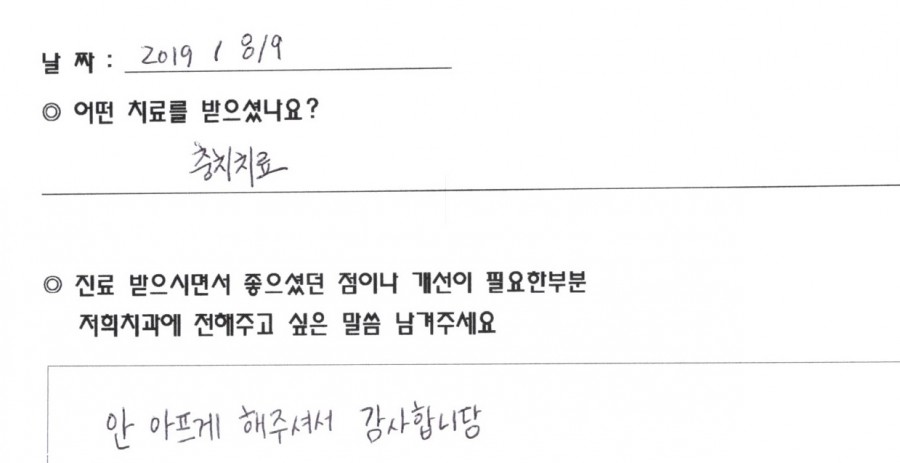 날 짜 : 2019 / 8/9
◎ 어떤 치료를 받으셨나요?
충치치료
◎ 진료 받으시면서 좋으셨던 점이나 개선이 필요한부분
저희치과에 전해주고 싶은 말씀 남겨주세요
안 아프게 해주셔서 감사합니당